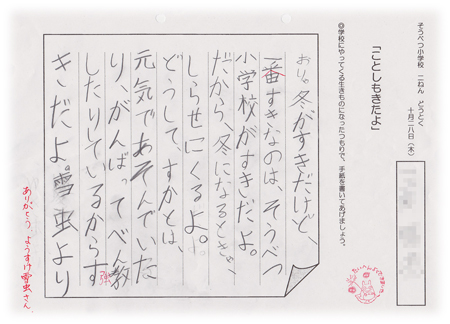 そうべつ小学校 二ねん どうとく
十月二八日(木)
「ことしもきたよ」
◎学校にやってくる生きものになったつもりで、手紙を書いてあげましょう。
冬がすきだけど、
番すきなのは、そうべつ
小学校がすきだよ。
だから、冬になるときゃ、
しらせにくるよ。
どうして、すかとは、
元気であそんでいた
り、がんばってべん教
強
したりしているからす
きだよ。雪虫より
ありがとう、ようすけ雪虫さん。